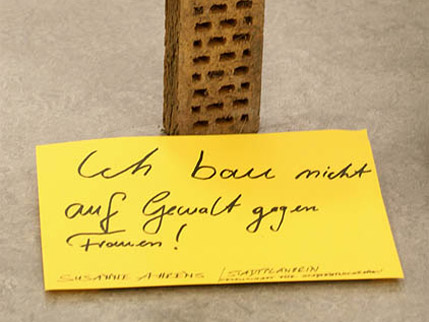 Ich bau nicht
auf Gewalt gegen
Frauen!
SUSANNE AHRENS | STADTPLANERIN